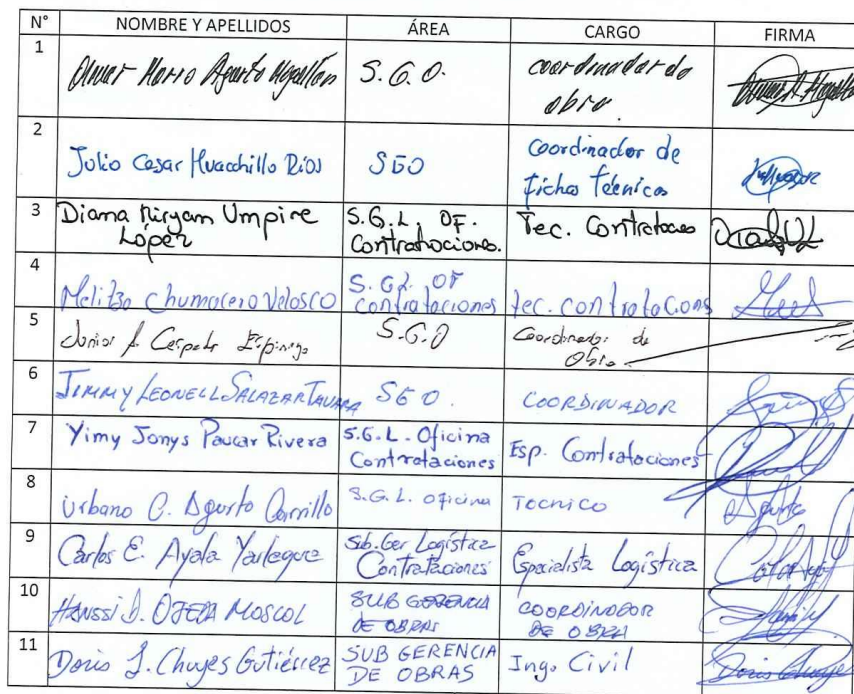 N° NOMBRE Y APELLIDOS ÁREA CARGO FIRMA
1 Omar Agurto S.G.O. coordinador de
obra.
2 Julio Cesar Huacchillo Rios SGO Coordinador de
fichas técnicas
3 Diana Miryam Umpire S.G.L. OF. Tec. Contrataciones
López Contrataciones.
4 Melitza Chumacero Velasco S.GL. OF tec. contrataciones
contrataciones
5 Junior S.G.O Coordinador de
Obra
6 JIMMY LEONELL SALAZAR TAVARA SGO. COORDINADOR
7 Yimy Jonys Paucar Rivera S.G.L. Oficina Esp. Contrataciones
Contrataciones
8 Urbano C. Agurto Carrillo S.G.L. oficina Tecnico
9 Carlos E. Ayala Yarleque Sub.Ger Logística Especialista Logística
Contrataciones
10 OJEDA MOSCOL SUB GERENCIA COORDINADOR
DE OBRAS DE OBRA
11 Doris J. Chuyes Gutiérrez SUB GERENCIA Ing. Civil
DE OBRAS